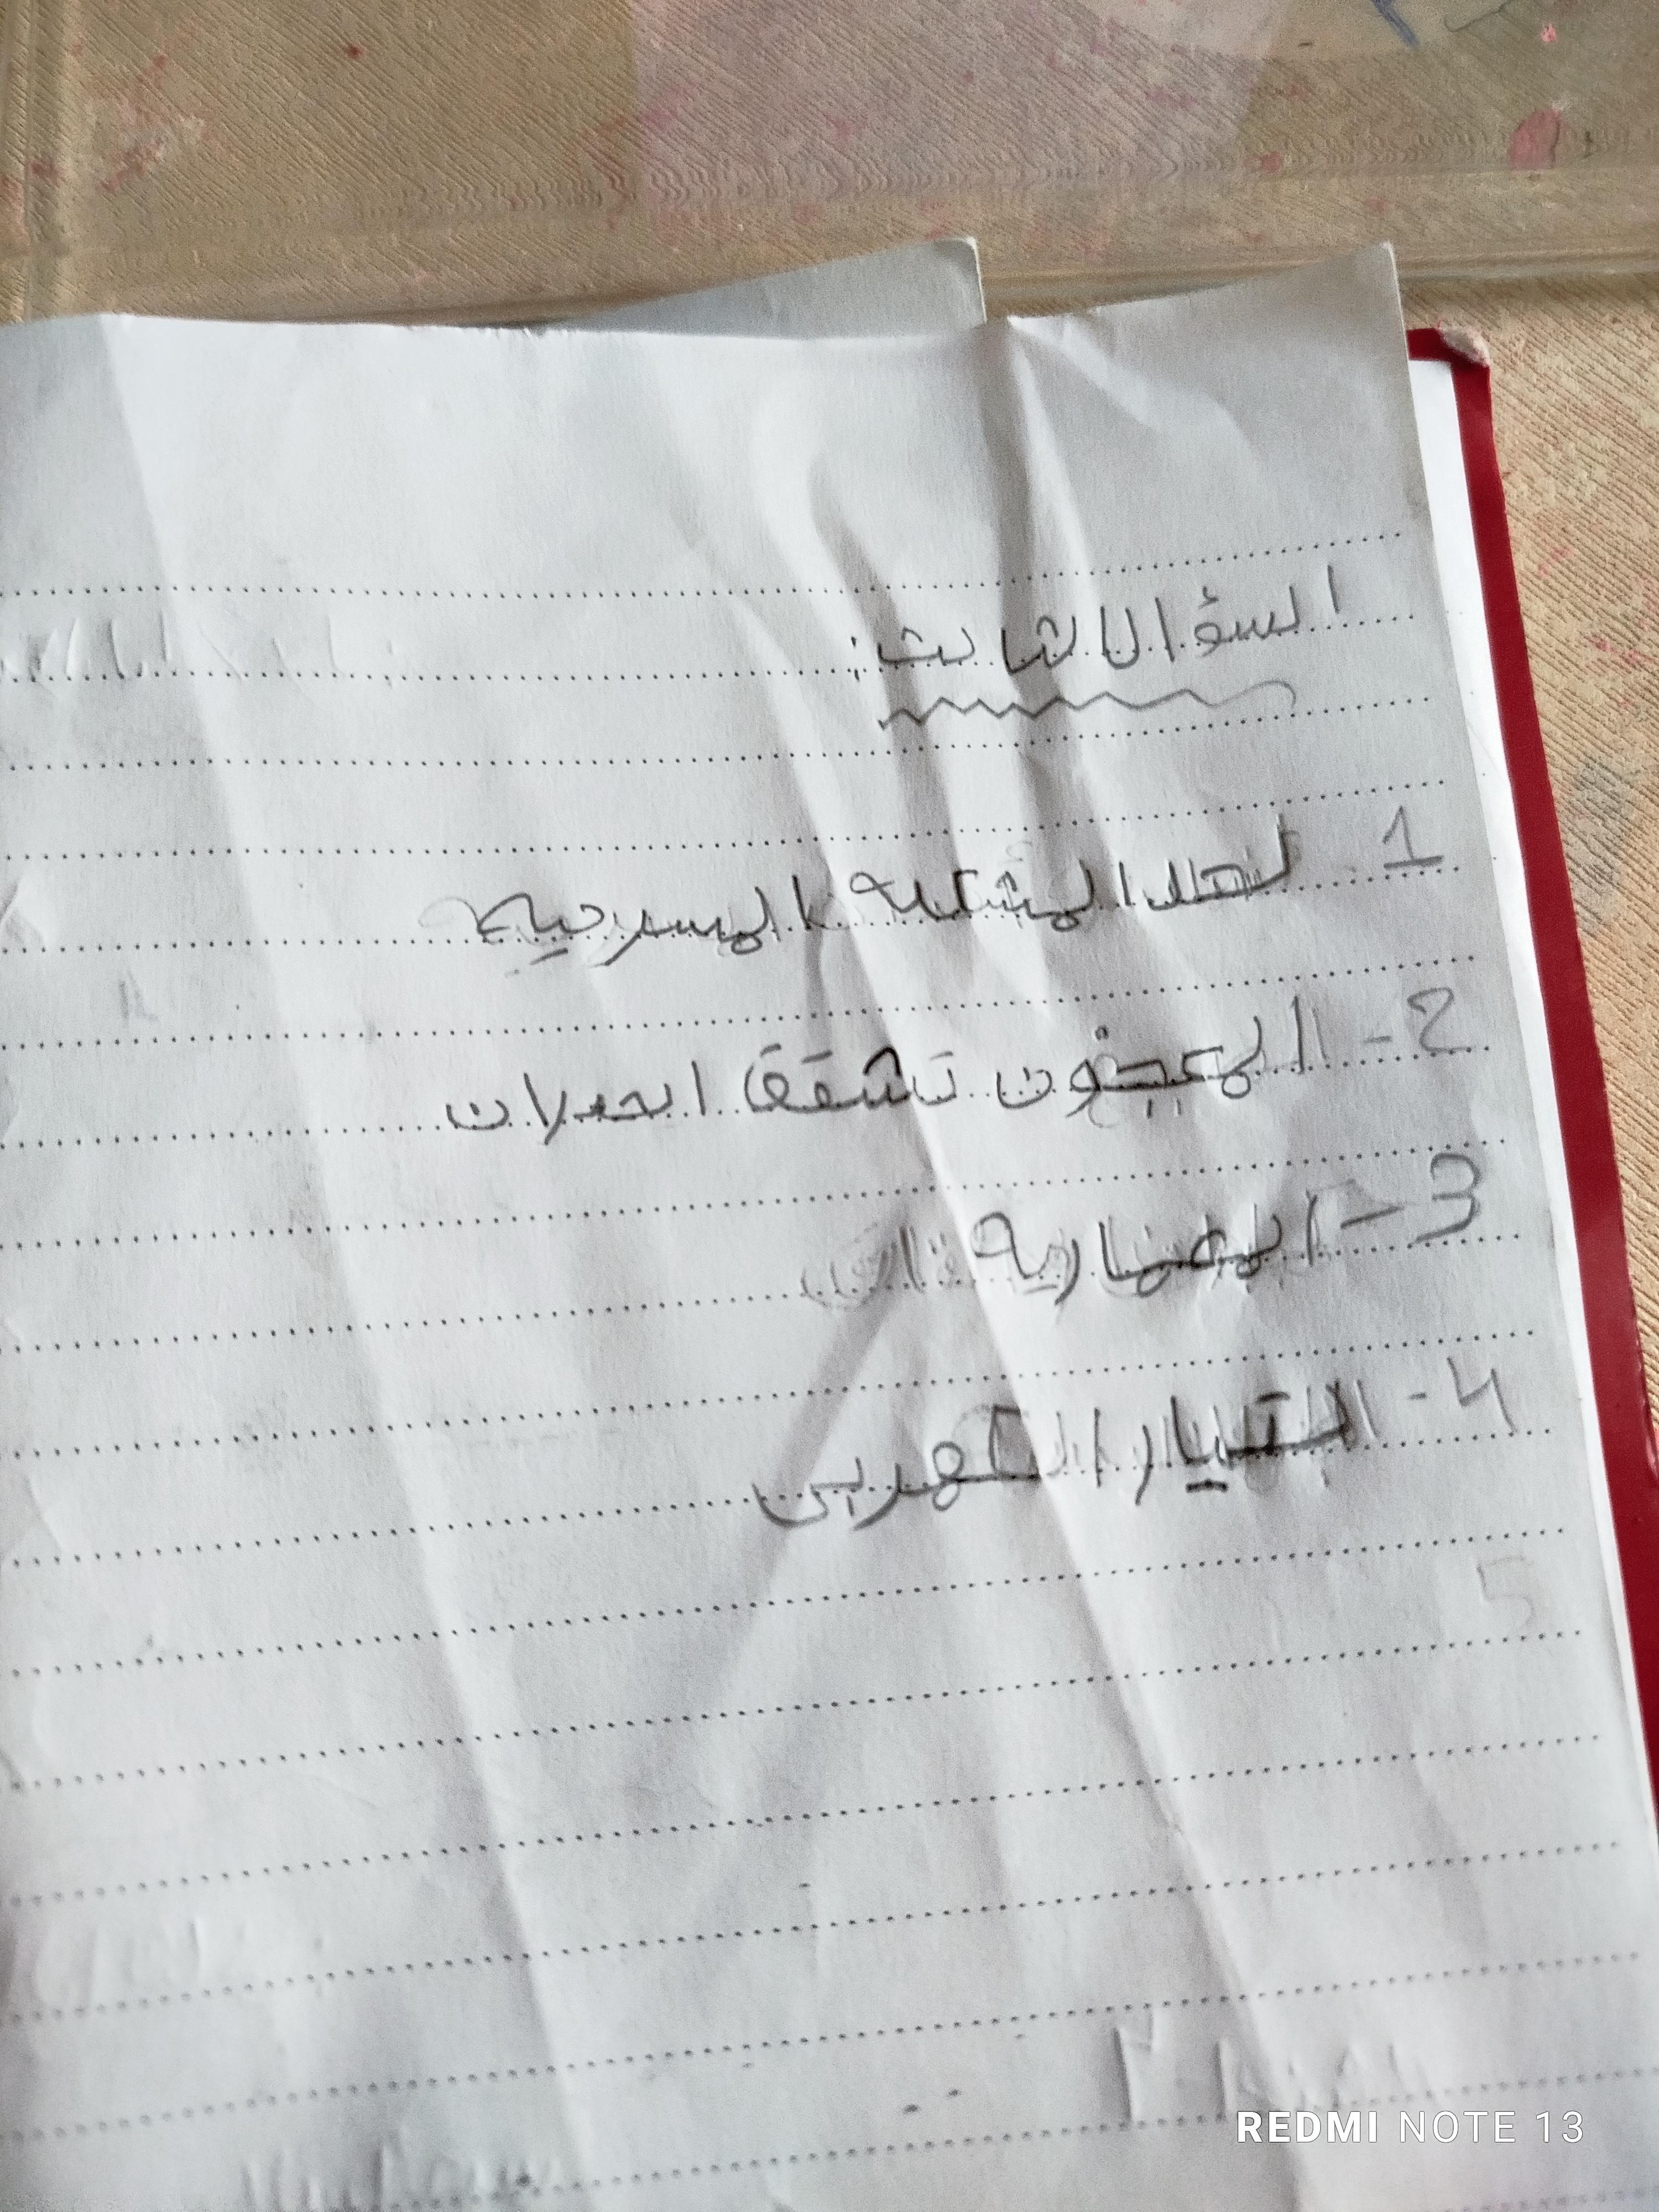 السؤال الثالث:
1 لحل المشكلة المسرحية
2- المعجون تشقق الجدران
3- المضاربة
4- التيار الكهربى
5
REDMI NOTE 13